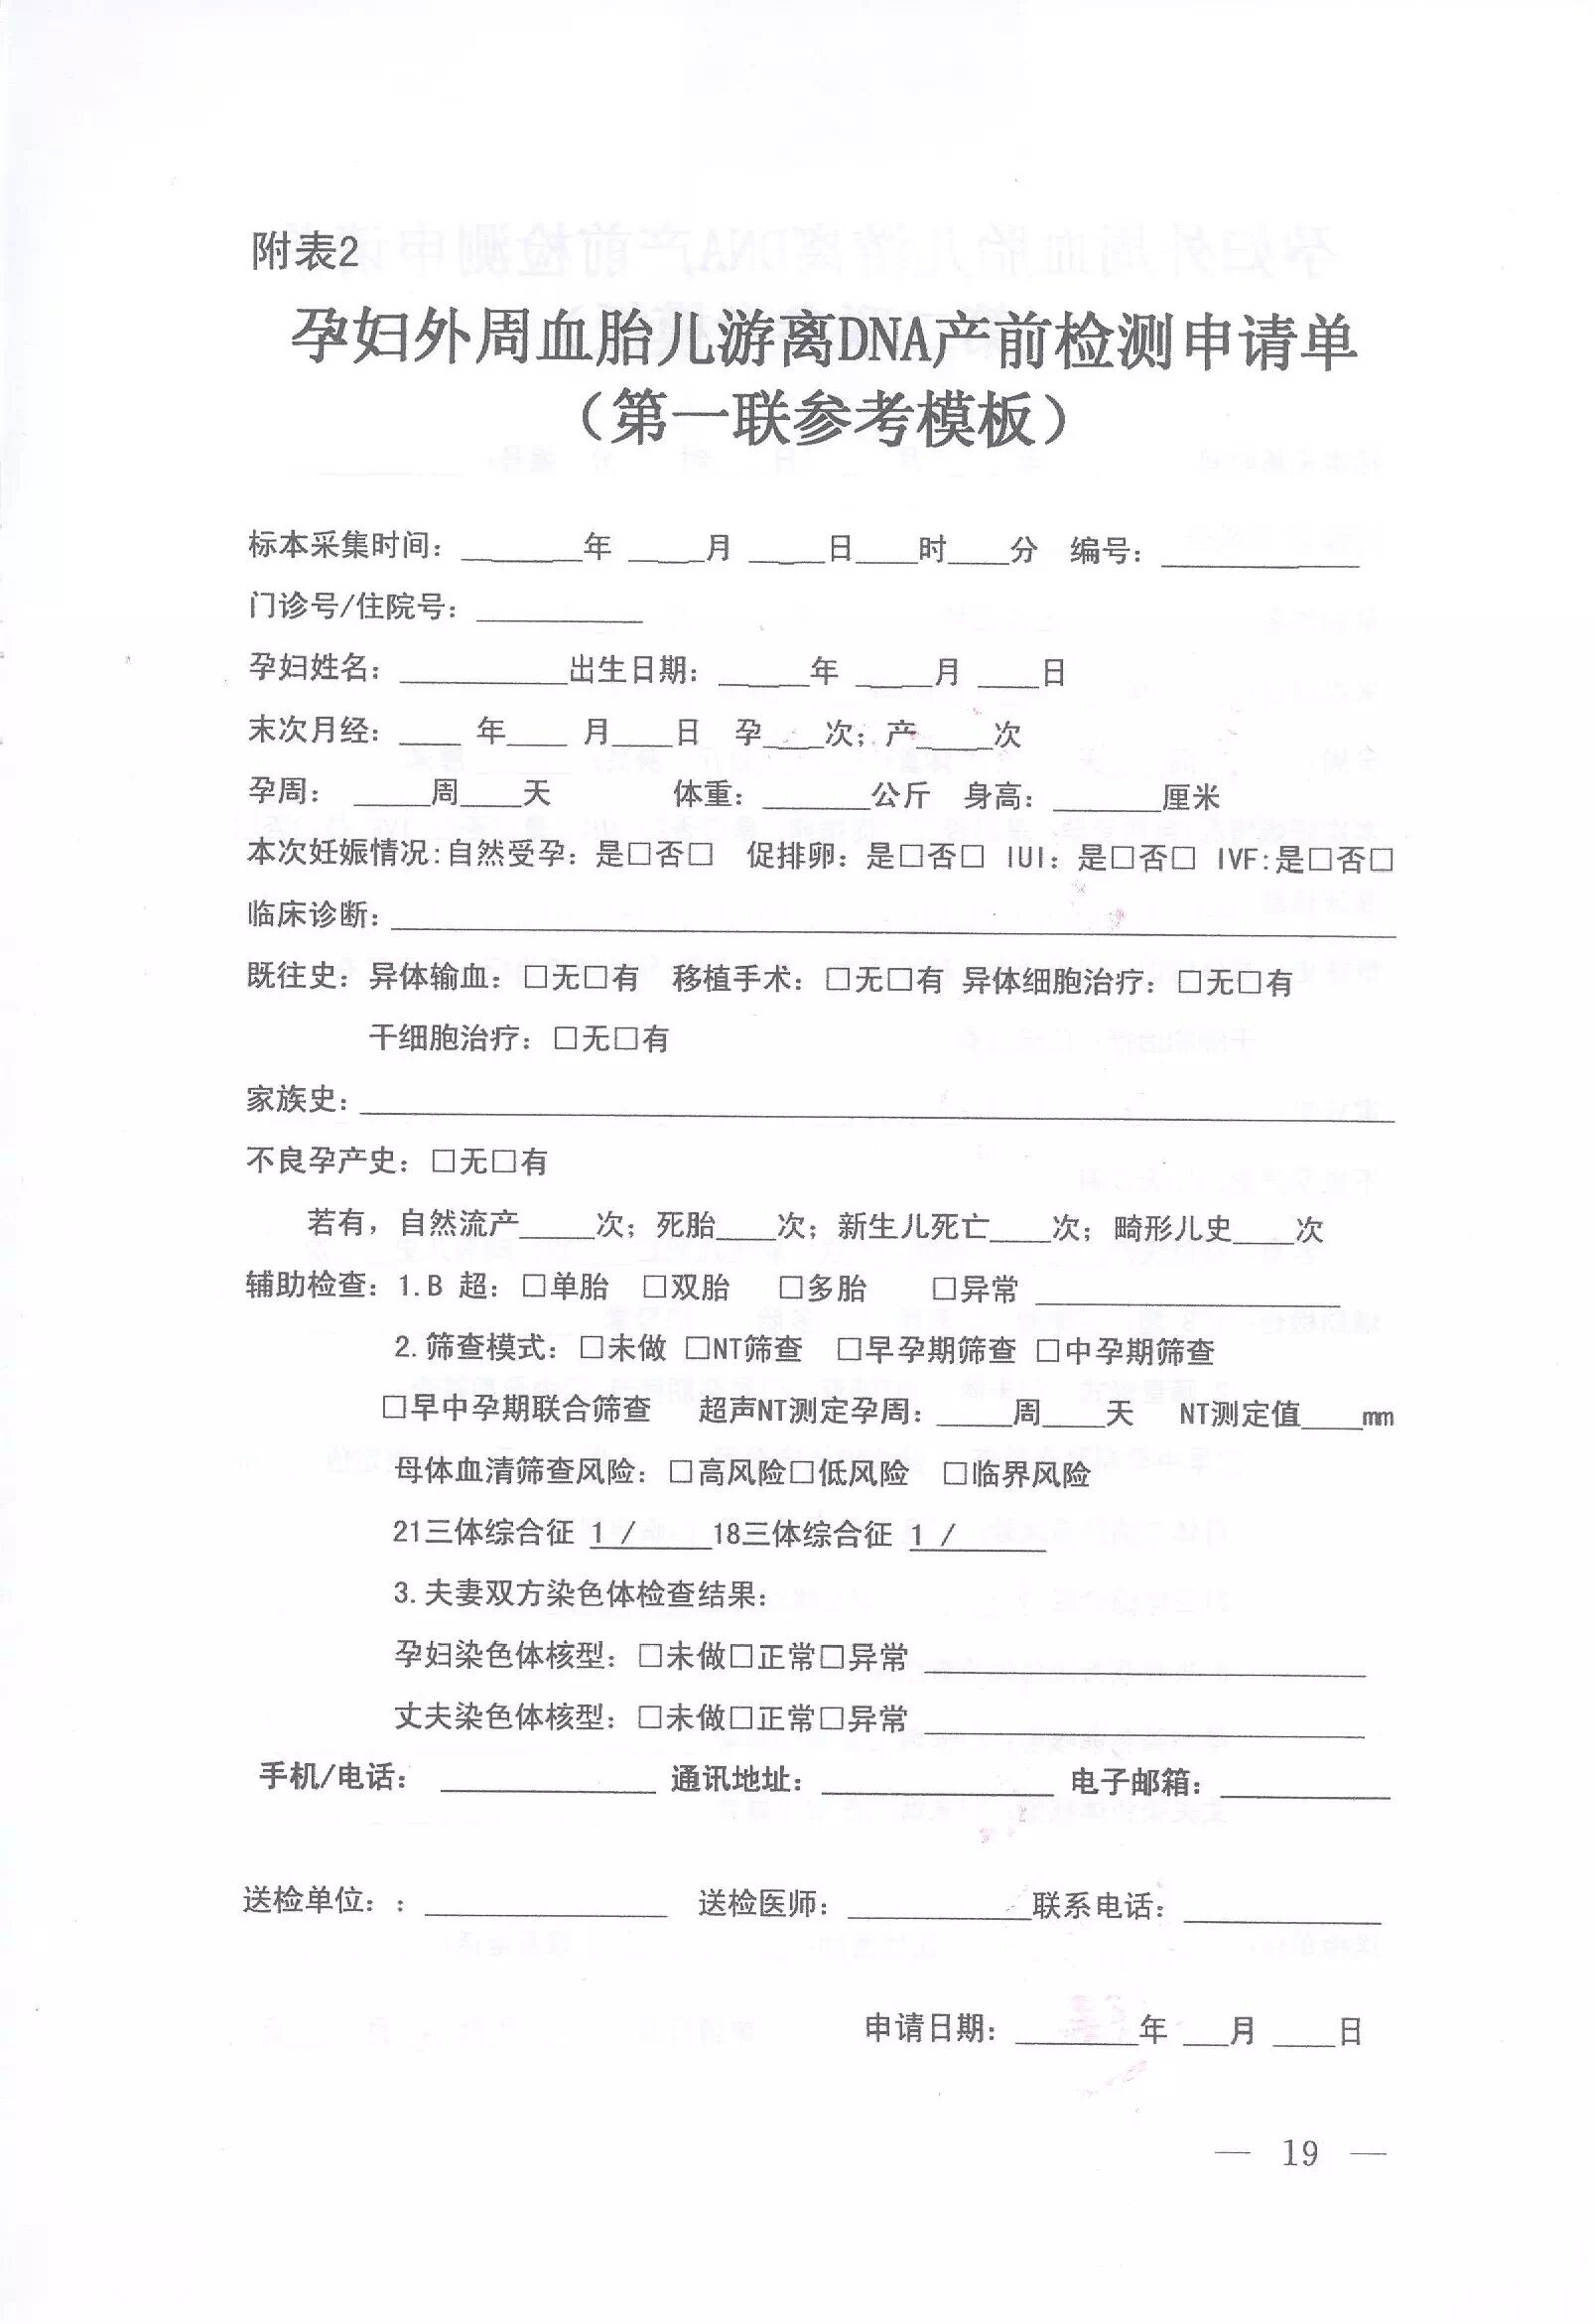 附表2
孕妇外周血胎儿游离DNA产前检测申请单
（第一联参考模板）
标本采集时间：________年 _____月 _____日____时____分 编号：_____________
门诊号/住院号：___________
孕妇姓名：___________出生日期：______年 _____月 ____日
末次月经：____ 年____ 月____日 孕____次；产_____次
孕周： _____周____天 体重：_______公斤 身高：_______厘米
本次妊娠情况:自然受孕：是□否□ 促排卵：是□否□ IUI：是□否□ IVF:是□否□
临床诊断：____________________________________________
既往史：异体输血：□无□有 移植手术：□无□有 异体细胞治疗：□无□有
干细胞治疗：□无□有
家族史：____________________________________________
不良孕产史：□无□有
若有，自然流产_____次；死胎____次；新生儿死亡____次；畸形儿史____次
辅助检查：1.B 超：□单胎 □双胎 □多胎 □异常 ____________________
2.筛查模式：□未做 □NT筛查 □早孕期筛查 □中孕期筛查
□早中孕期联合筛查 超声NT测定孕周：_____周____天 NT测定值____mm
母体血清筛查风险：□高风险□低风险 □临界风险
21三体综合征 1 / _____18三体综合征 1 / ______
3.夫妻双方染色体检查结果：
孕妇染色体核型：□未做□正常□异常 _____________________________
丈夫染色体核型：□未做□正常□异常 _____________________________
手机/电话： ______________ 通讯地址：_______________ 电子邮箱：___________
送检单位：：________________ 送检医师：____________联系电话：_____________
申请日期：________年 ___月 ____日
— 19 —